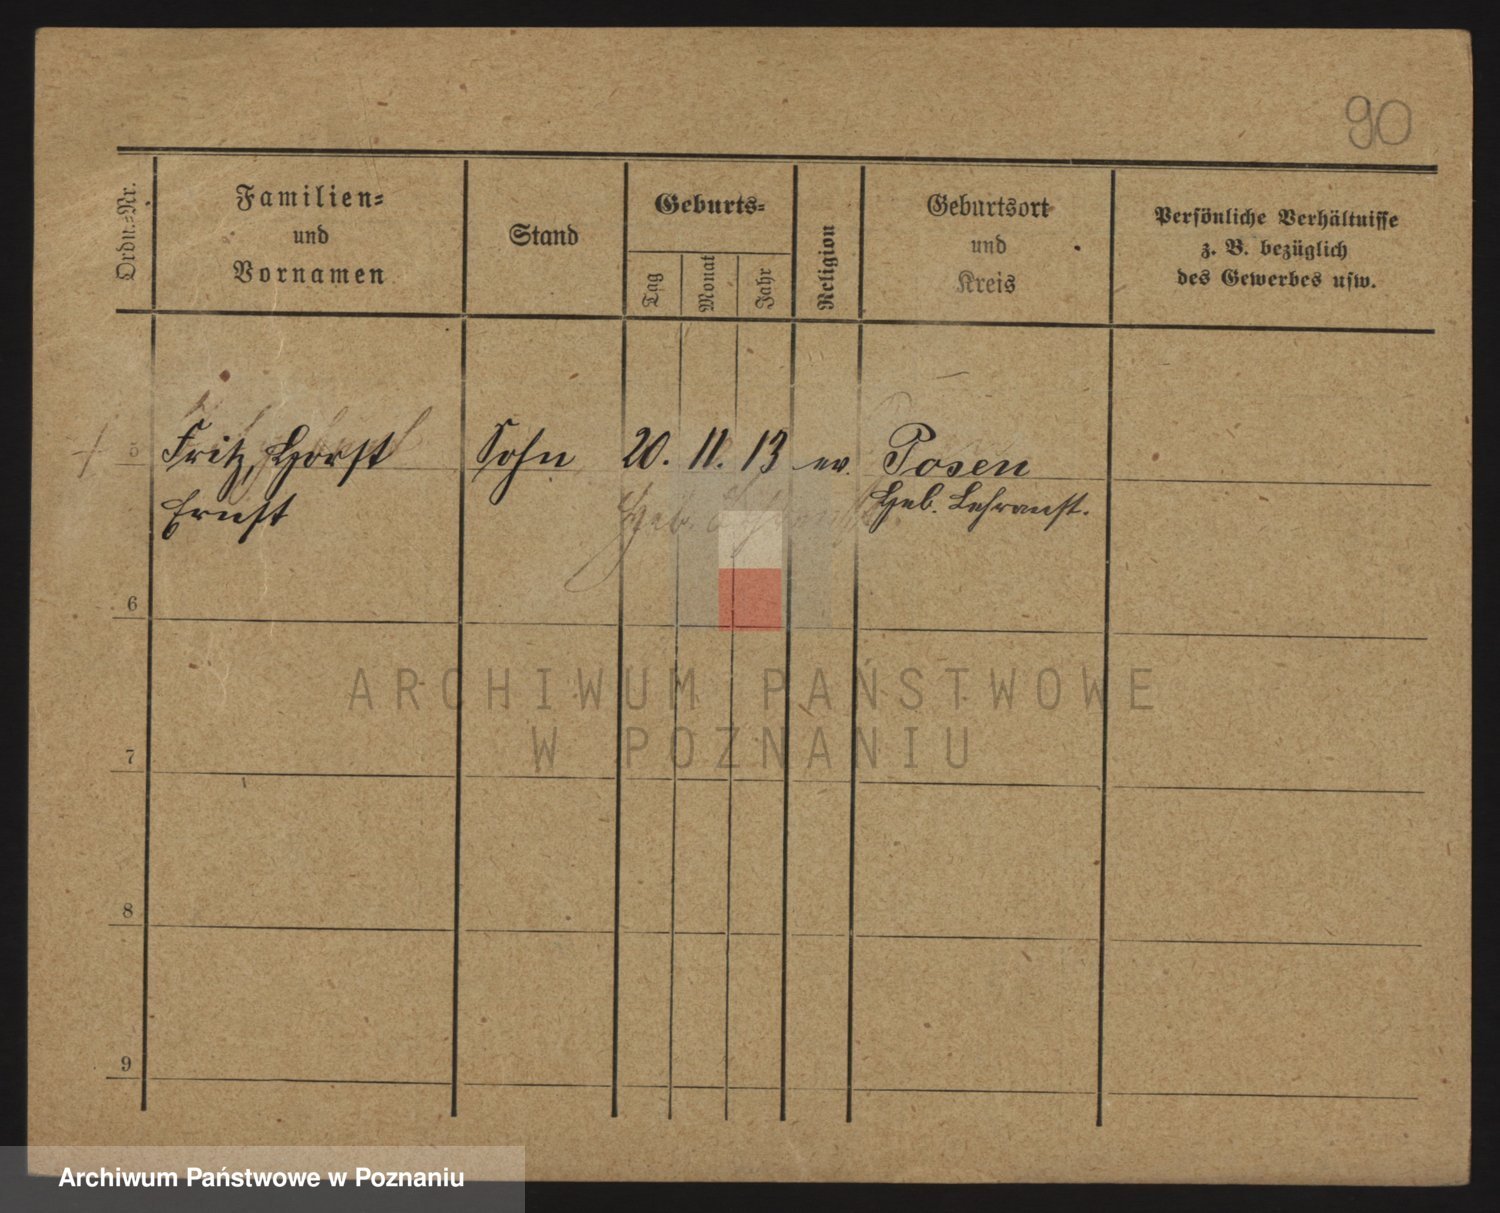 90
Ordn.-Nr.
Familien-
und
Vornamen
Stand
Geburts-
Tag
Monat
Jahr
Religion
Geburtsort
und
Kreis
Persönliche Verhältnisse
z. B. bezüglich
des Gewerbes usw.
5 Fritz, Horst Sohn 20. 11. 13 ev. Posen
Ernst Heb. Lehranst.
6
ARCHIWUM PAŃSTWOWE
W POZNANIU
7
8
9
Archiwum Państwowe w Poznaniu